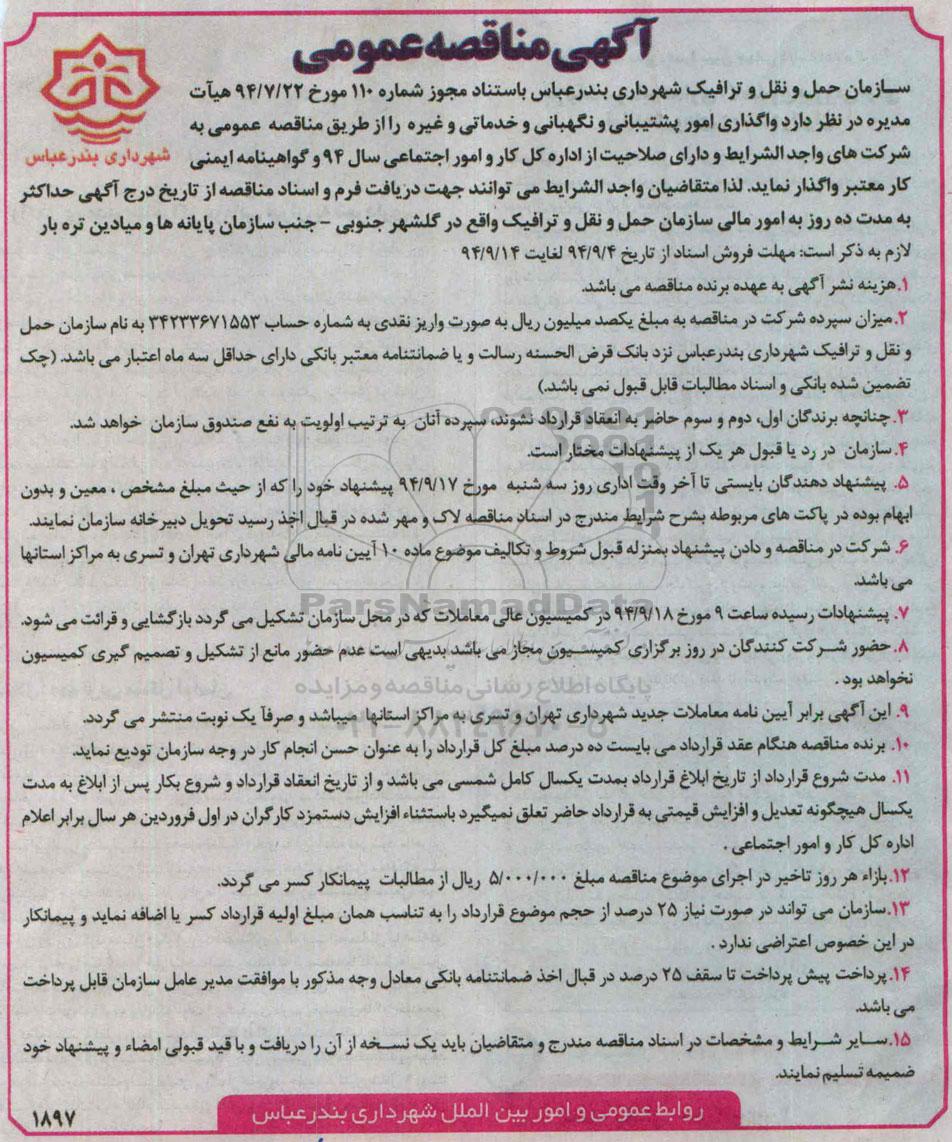 آگهی مناقصه عمومی
شهرداری بندرعباس
ســازمان حمل و نقل و ترافیک شهرداری بندرعباس باستناد مجوز شماره ۱۱۰ مورخ ۹۴/۷/۲۲ هیآت
مدیره در نظر دارد واگذاری امور پشتیبانی و نگهبانی و خدماتی و غیره را از طریق مناقصه عمومی به
شرکت های واجد الشرایط و دارای صلاحیت از اداره کل کار و امور اجتماعی سال ۹۴ و گواهینامه ایمنی
کار معتبر واگذار نماید. لذا متقاضیان واجد الشرایط می توانند جهت دریافت فرم و اسناد مناقصه از تاریخ درج آگهی حداکثر
به مدت ده روز به امور مالی سازمان حمل و نقل و ترافیک واقع در گلشهر جنوبی – جنب سازمان پایانه ها و میادین تره بار
لازم به ذکر است: مهلت فروش اسناد از تاریخ ۹۴/۹/۴ لغایت ۹۴/۹/۱۴
۱.هزینه نشر آگهی به عهده برنده مناقصه می باشد.
۲.میزان سپرده شرکت در مناقصه به مبلغ یکصد میلیون ریال به صورت واریز نقدی به شماره حساب ۳۴۲۳۳۶۷۱۵۵۳ به نام سازمان حمل
و نقل و ترافیک شهرداری بندرعباس نزد بانک قرض الحسنه رسالت و یا ضمانتنامه معتبر بانکی دارای حداقل سه ماه اعتبار می باشد. (چک
تضمین شده بانکی و اسناد مطالبات قابل قبول نمی باشد.)
۳. چنانچه برندگان اول، دوم و سوم حاضر به انعقاد قرارداد نشوند، سپرده آنان به ترتیب اولویت به نفع صندوق سازمان خواهد شد.
۴.سازمان در رد یا قبول هر یک از پیشنهادات مختار است.
۵. پیشنهاد دهندگان بایستی تا آخر وقت اداری روز سه شنبه مورخ ۹۴/۹/۱۷ پیشنهاد خود را که از حیث مبلغ مشخص ، معین و بدون
ابهام بوده در پاکت های مربوطه بشرح شرایط مندرج در اسناد مناقصه لاک و مهر شده در قبال اخذ رسید تحویل دبیرخانه سازمان نمایند.
۶. شرکت در مناقصه و دادن پیشنهاد بمنزله قبول شروط و تکالیف موضوع ماده ۱۰ آیین نامه مالی شهرداری تهران و تسری به مراکز استانها
می باشد.
ParsNamadData
۷. پیشنهادات رسیده ساعت ۹ مورخ ۹۴/۹/۱۸ در کمیسیون عالی معاملات که در محل سازمان تشکیل می گردد بازگشایی و قرائت می شود.
۸.حضور شــرکت کنندگان در روز برگزاری کمیســیون مجاز می باشد بدیهی است عدم حضور مانع از تشکیل و تصمیم گیری کمیسیون
نخواهد بود .
پایگاه اطلاع رسانی مناقصه و مزایده
۹. این آگهی برابر آیین نامه معاملات جدید شهرداری تهران و تسری به مراکز استانها میباشد و صرفآ یک نوبت منتشر می گردد.
۱۰. برنده مناقصه هنگام عقد قرارداد می بایست ده درصد مبلغ کل قرارداد را به عنوان حسن انجام کار در وجه سازمان تودیع نماید.
۱۱. مدت شروع قرارداد از تاریخ ابلاغ قرارداد بمدت یکسال کامل شمسی می باشد و از تاریخ انعقاد قرارداد و شروع بکار پس از ابلاغ به مدت
یکسال هیچگونه تعدیل و افزایش قیمتی به قرارداد حاضر تعلق نمیگیرد باستثناء افزایش دستمزد کارگران در اول فروردین هر سال برابر اعلام
اداره کل کار و امور اجتماعی .
۱۲.بازاء هر روز تاخیر در اجرای موضوع مناقصه مبلغ ۵/۰۰۰/۰۰۰ ریال از مطالبات پیمانکار کسر می گردد.
۱۳.سازمان می تواند در صورت نیاز ۲۵ درصد از حجم موضوع قرارداد را به تناسب همان مبلغ اولیه قرارداد کسر یا اضافه نماید و پیمانکار
در این خصوص اعتراضی ندارد .
۱۴.پرداخت پیش پرداخت تا سقف ۲۵ درصد در قبال اخذ ضمانتنامه بانکی معادل وجه مذکور با موافقت مدیر عامل سازمان قابل پرداخت
می باشد.
۱۵.ســایر شــرایط و مشخصات در اسناد مناقصه مندرج و متقاضیان باید یک نســخه از آن را دریافت و با قید قبولی امضاء و پیشنهاد خود
ضمیمه تسلیم نمایند.
روابط عمومی و امور بین الملل شهرداری بندرعباس
۱۸۹۷